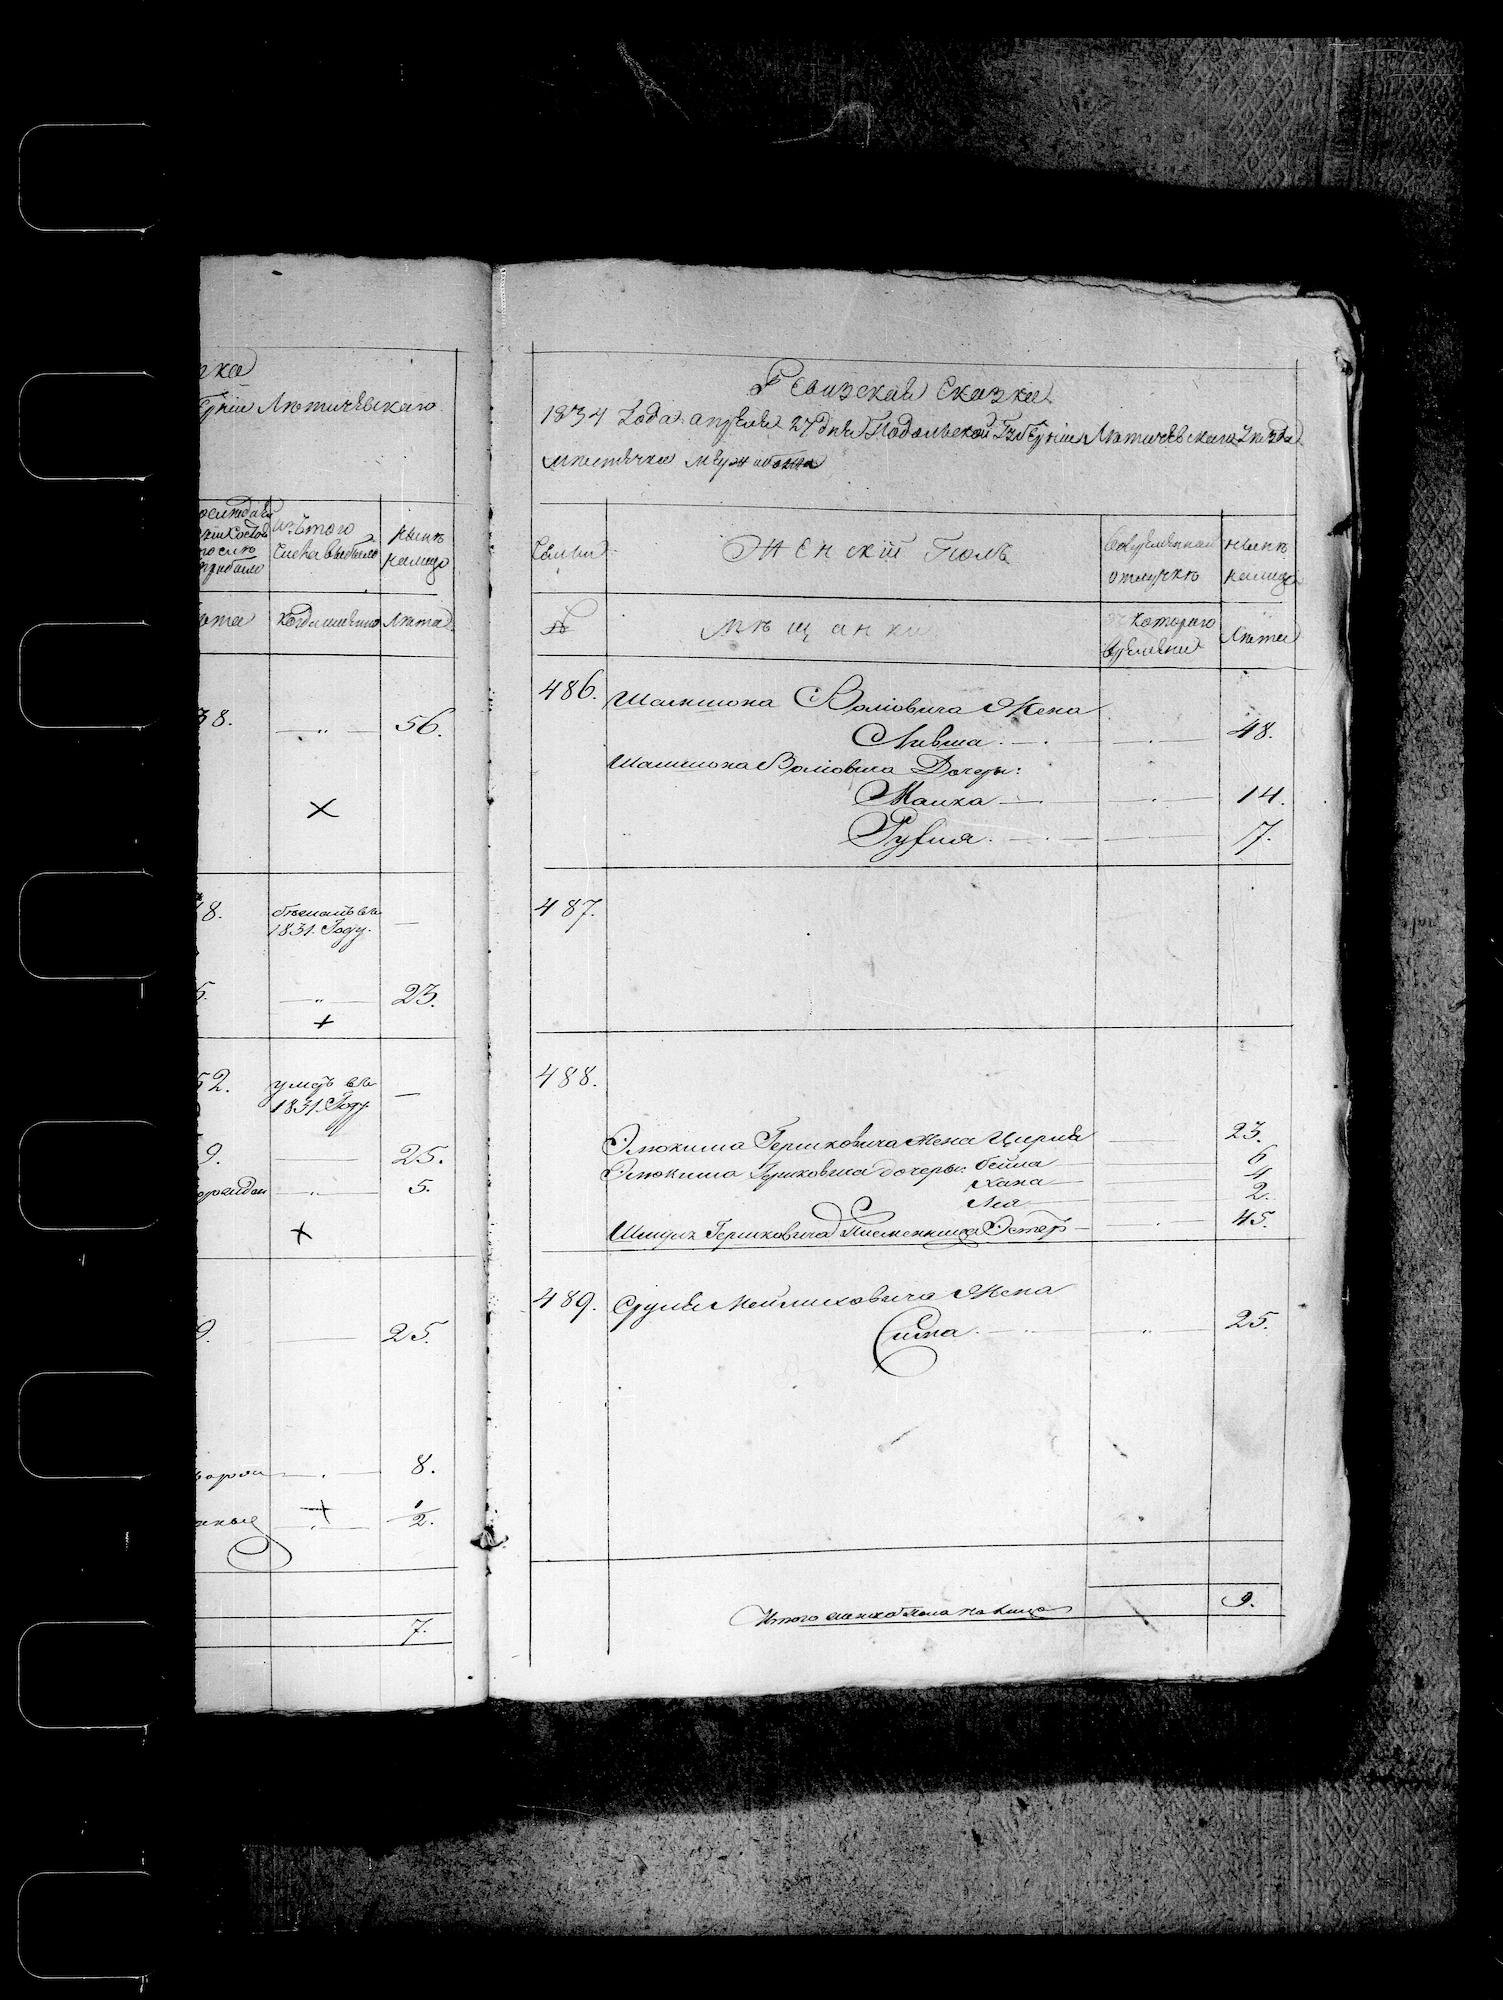 губерніи Летичевскаго
изътого
числа выбыло
нынѣ
налицо
Когда имянно
Лѣта
38.
56.
48.
1831. Году.
23.
52.
умеръ въ
1831. Году
9.
25.
5.
9.
25.
8.
1/2.
7.
Ревизская Сказка
1834 Года апреля 27 дня Подольской Губерніи Летичевскаго уезда
местечка Межибожа
Семьи
Женскій Полъ
Вовременной
отлучкѣ
нынѣ
налицо
№
мѣщанки
скотораго
времени
Лѣта
486. Шамшона Волковича Жена
Ливша. 48.
Шамшона Волковича Дочери:
Малка 14.
Руфля. 7.
487.
488.
Элюкима Гершковича жена Цирля 23.
Элюкима Гершковича дочери: бейла 6
Хана 4
Леа 2.
Гершковича Племенница Эстеръ 45.
489. Сруля Мейлиховича Жена
Сима. 25.
Итого женскаго пола налицо 9.